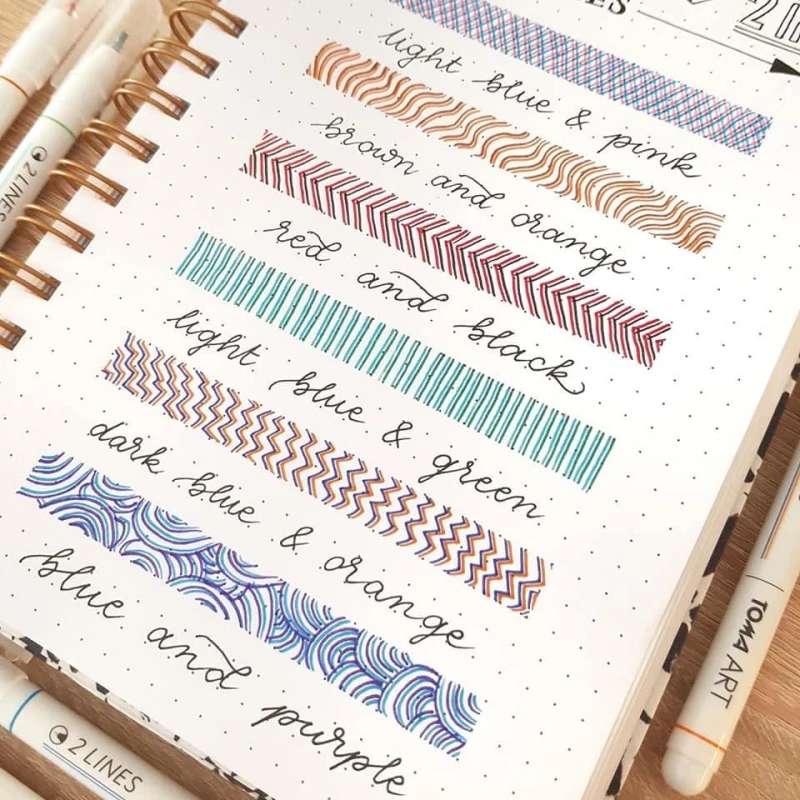 light blue & pink
brown and orange
red and black
light blue & green
dark blue & orange
blue and purple
2 LINES
2 LINES
TOMA ART